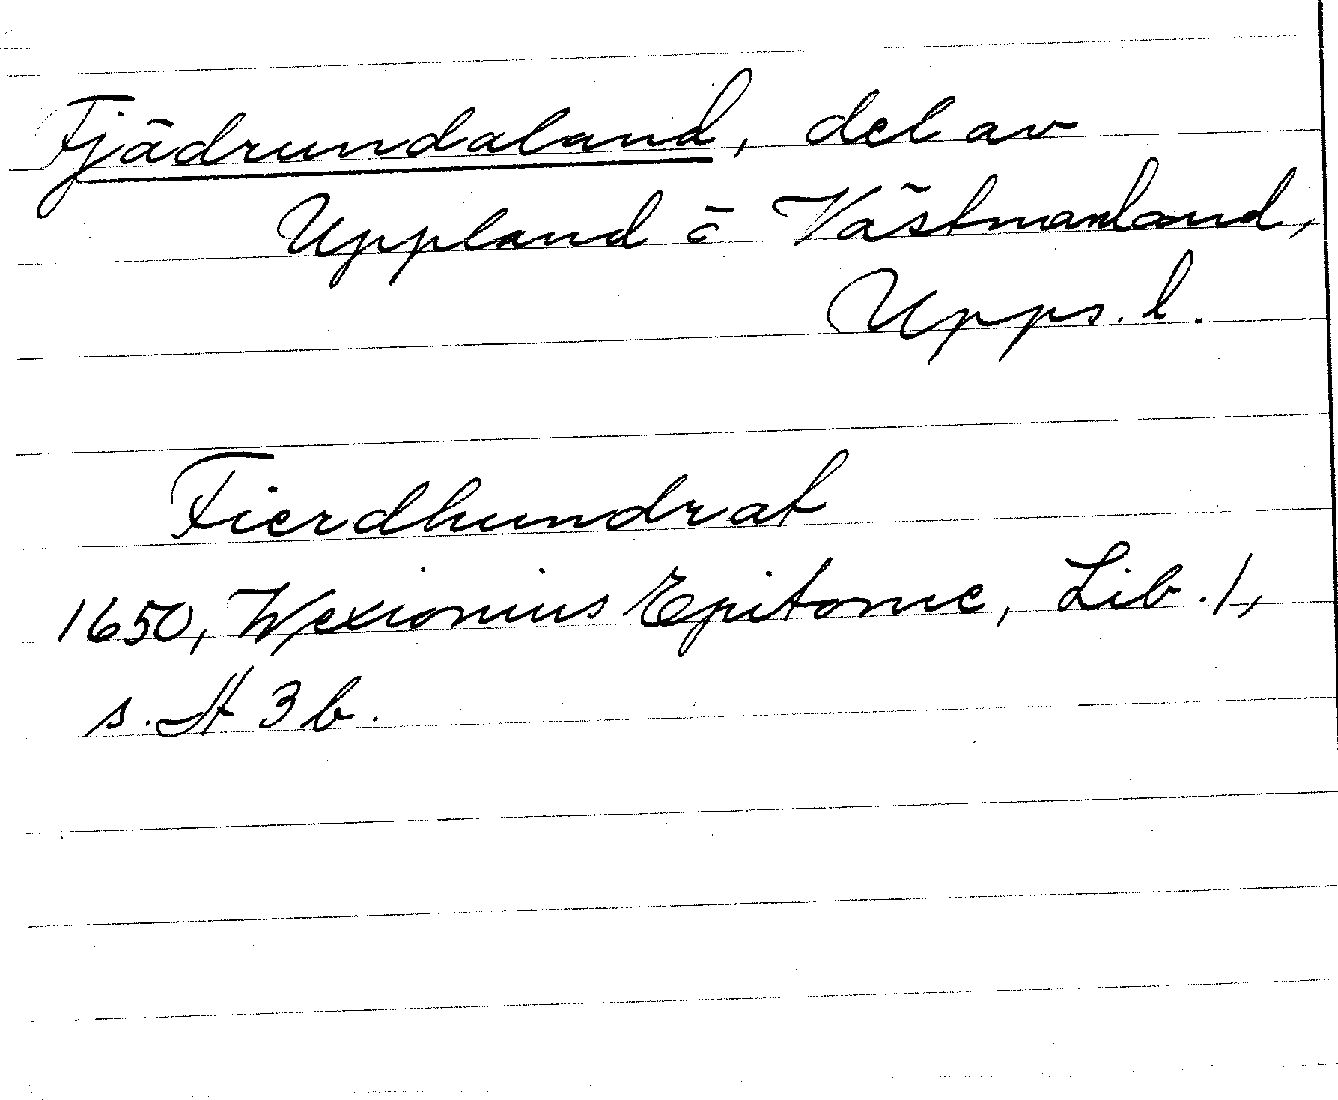 Fjädrundaland, del av
Uppland o Västmanland,
Upps. l.
Fierdhundrat
1650, Wexionius Epitome, Lib. 1,
s. A 3 b.